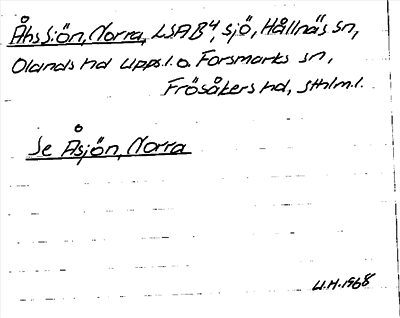 Åhssjön, Norra, LSA B4, sjö, Hållnäs sn,
Olands hd Upps.l. o. Forsmarks sn,
Frösåkers hd, Sthlm.l.
Se Åsjön, Norra
U.H. 1968